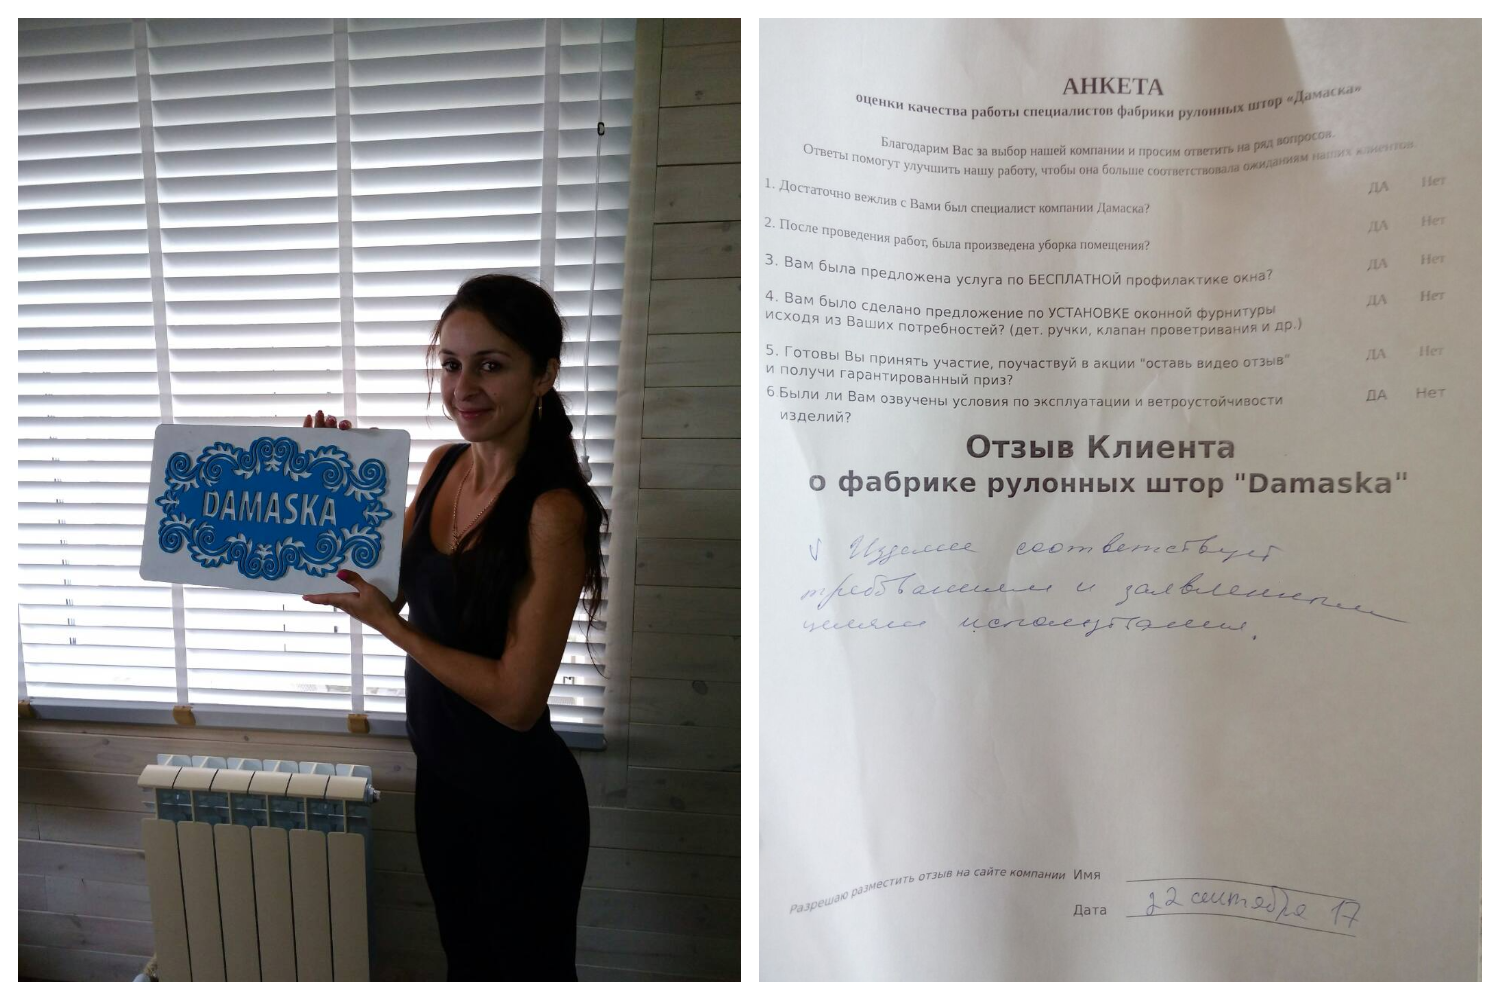 DAMASKA
АНКЕТА
оценки качества работы специалистов фабрики рулонных штор «Дамаска«
Благодарим Вас за выбор нашей компании и просим ответить на ряд вопросов.
Ответы помогут улучшить нашу работу, чтобы она больше соответствовала ожиданиям наших клиентов.
1. Достаточно вежлив с Вами был специалист компании Дамаска? ДА Нет
2. После проведения работ, была произведена уборка помещения? ДА Нет
3. Вам была предложена услуга по БЕСПЛАТНОЙ профилактике окна? ДА Нет
4. Вам было сделано предложение по УСТАНОВКЕ оконной фурнитуры ДА Нет
исходя из Ваших потребностей? (дет. ручки, клапан проветривания и др.)
5. Готовы Вы принять участие, поучаствуй в акции "оставь видео отзыв" ДА Нет
и получи гарантированный приз?
6.Были ли Вам озвучены условия по эксплуатации и ветроустойчивости ДА Нет
изделий?
Отзыв Клиента
о фабрике рулонных штор "Damaska"
√ Изделие соответствует
требованиям и заявленным
целям использования.
Разрешаю разместить отзыв на сайте компании Имя
Дата 22 сентября 17